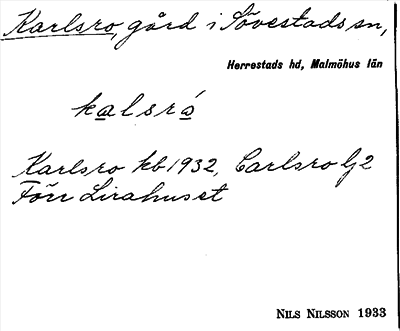 Karlsro, gård i Sövestads sn,
Herrestads hd, Malmöhus län
kalsrá
Karlsro kb 1932, Carlsro Lj 2
Förr Lirahuset
NILS NILSSON 1933